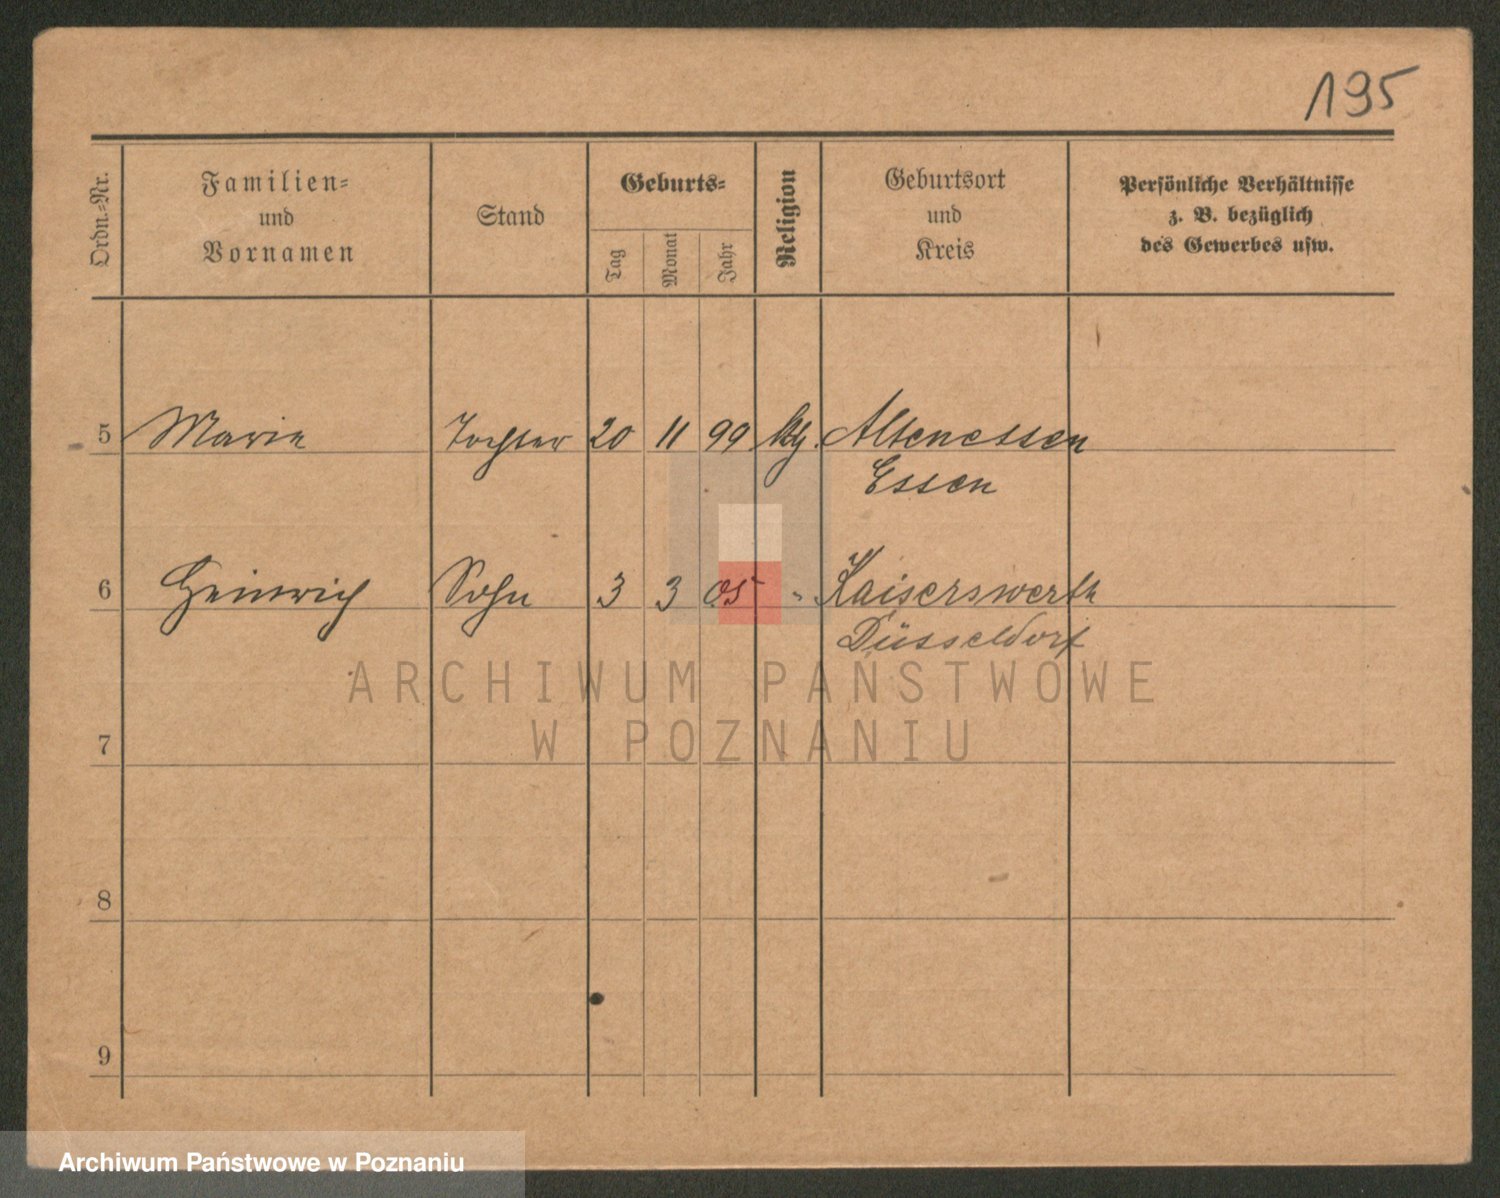 195
Ordn.=Nr.
Familien=
und
Vornamen
Stand
Geburts=
Tag
Monat
Jahr
Religion
Geburtsort
und
Kreis
Persönliche Verhältnisse
z. B. bezüglich
des Gewerbes usw.
5 Marie Tochter 20 11 99 Altenessen
Essen
6 Heinrich Sohn 3 3 05 " Kaiserswerth
Düsseldorf
ARCHIWUM PAŃSTWOWE
W POZNANIU
7
8
9
Archiwum Państwowe w Poznaniu